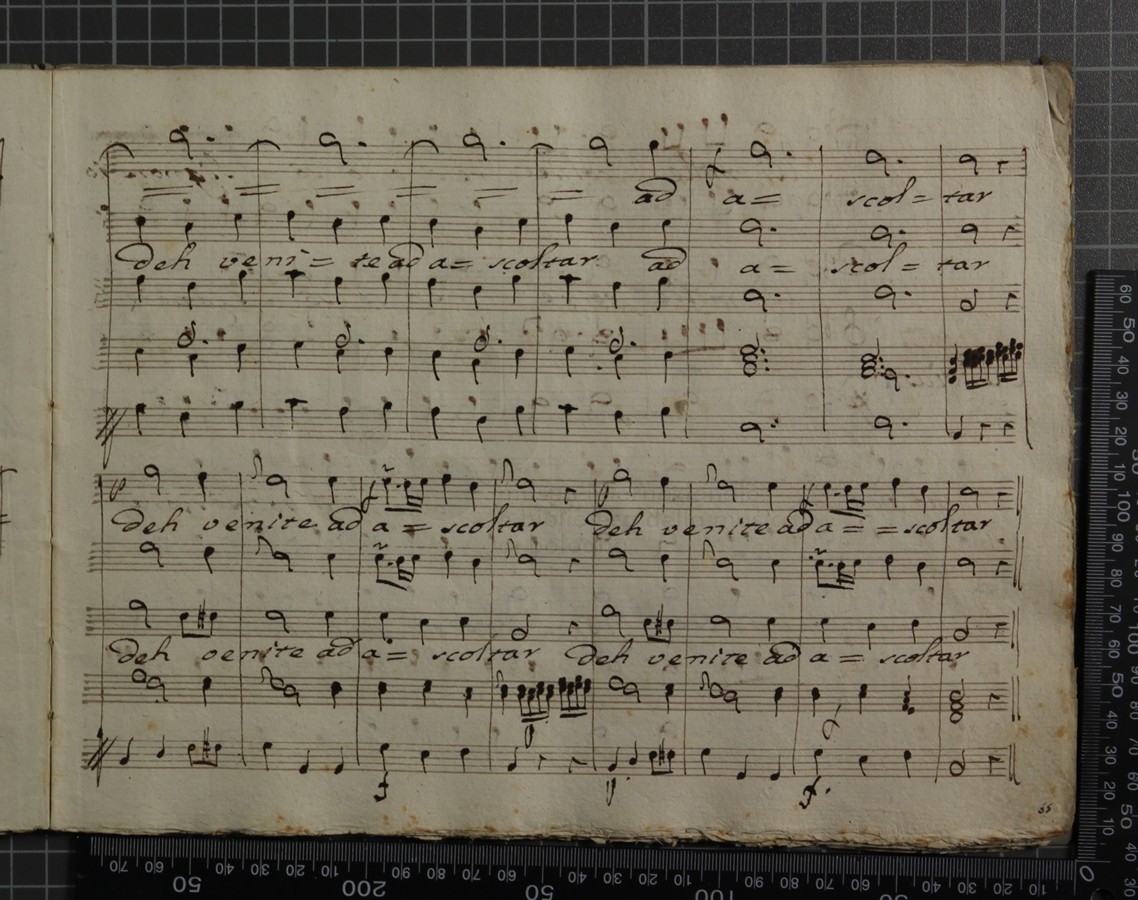 ad a= scol= tar
deh veni= te ad a= scoltar ad a= scol= tar
deh venite ad a= scoltar deh venite ad a= =scoltar
deh venite ad a= scoltar deh venite ad a= scoltar
55